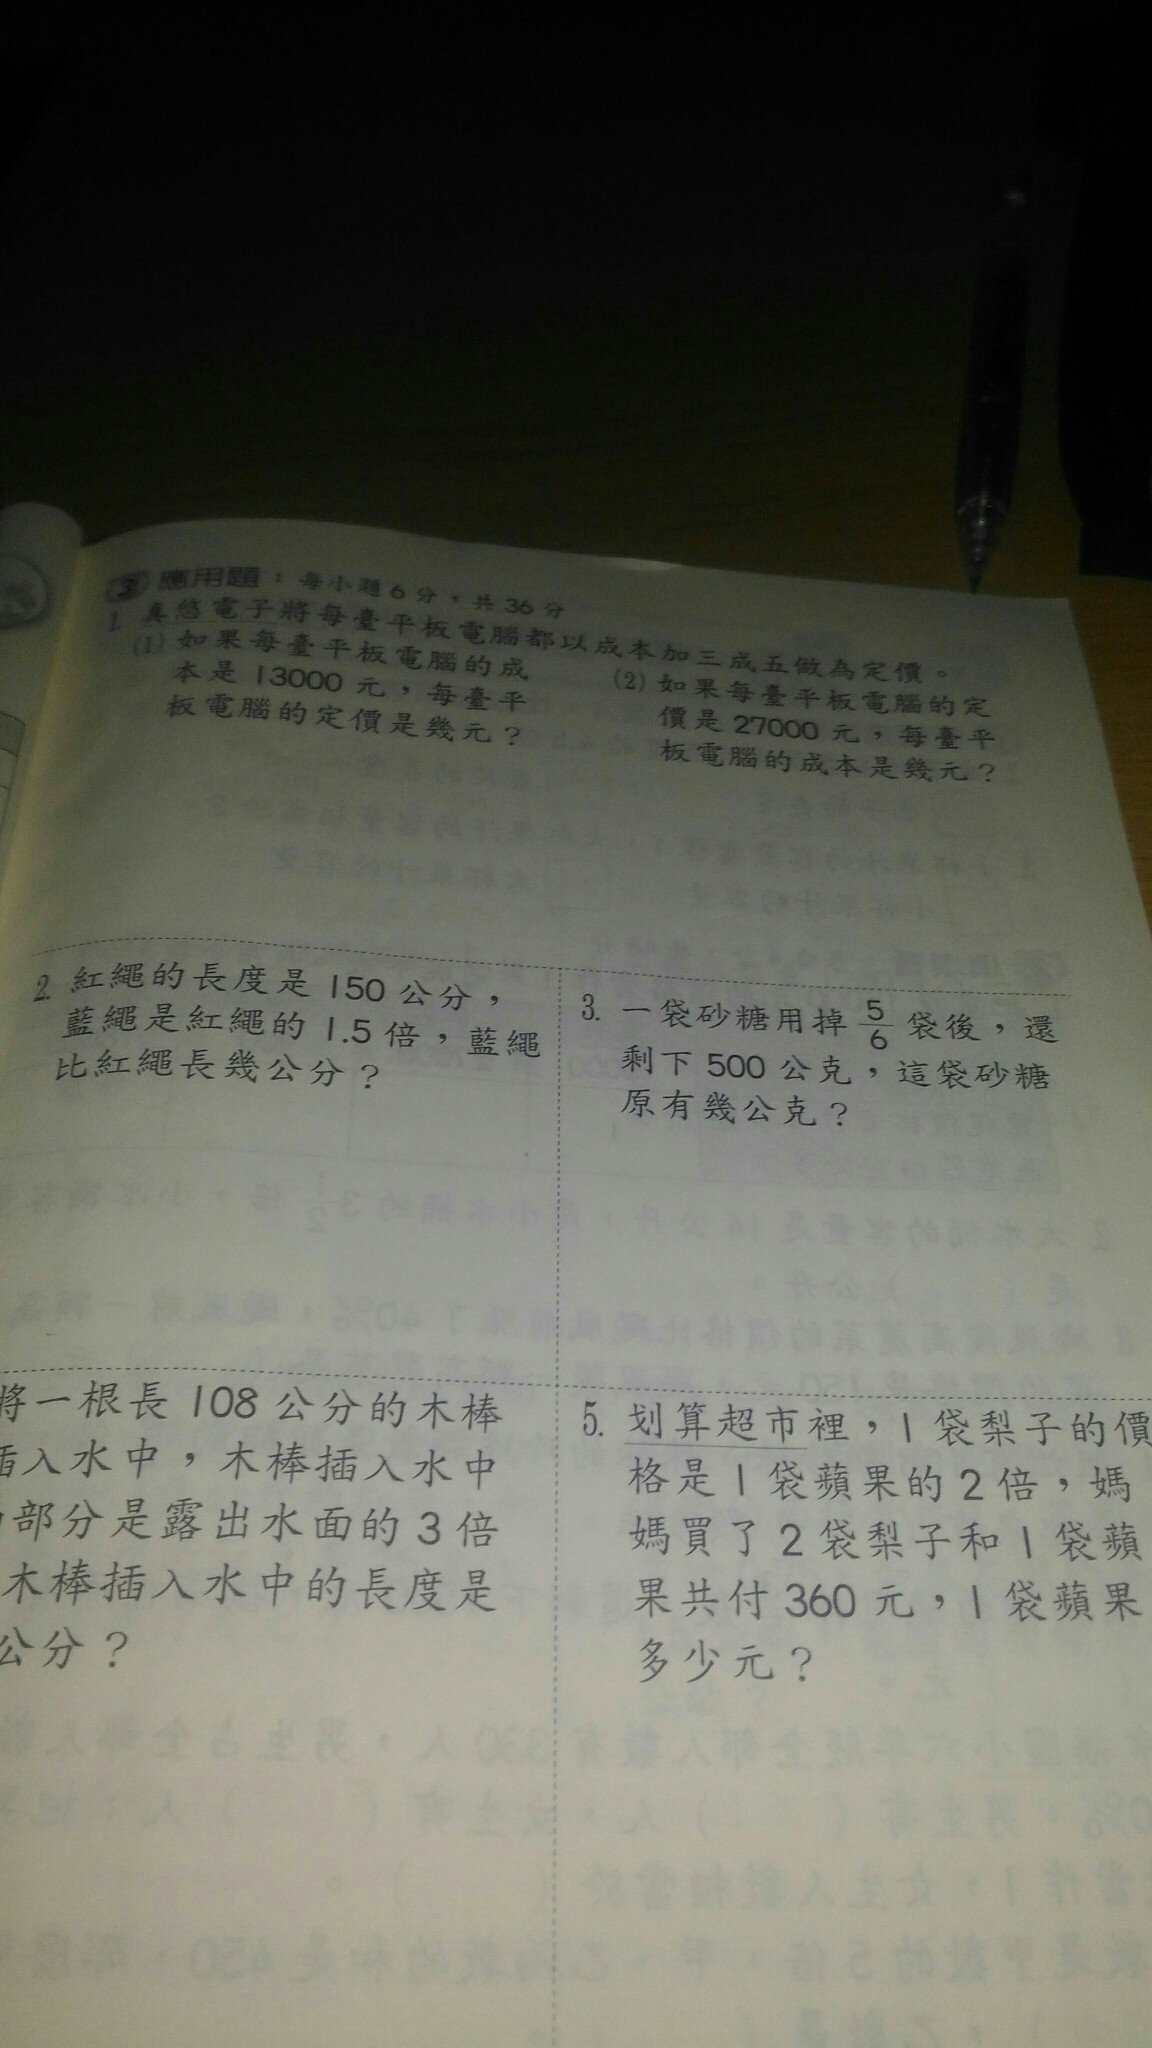 3 應用題：每小題6分，共36分
1. 真悠電子將每臺平板電腦都以成本加三成五做為定價。
(1) 如果每臺平板電腦的成
本是13000元，每臺平
板電腦的定價是幾元？
(2) 如果每臺平板電腦的定
價是27000元，每臺平
板電腦的成本是幾元？
2. 紅繩的長度是150公分，
藍繩是紅繩的1.5倍，藍繩
比紅繩長幾公分？
3. 一袋砂糖用掉5/6袋後，還
剩下500公克，這袋砂糖
原有幾公克？
將一根長108公分的木棒
插入水中，木棒插入水中
部分是露出水面的3倍
木棒插入水中的長度是
公分？
5. 划算超市裡，1袋梨子的價
格是1袋蘋果的2倍，媽
媽買了2袋梨子和1袋蘋
果共付360元，1袋蘋果
多少元？